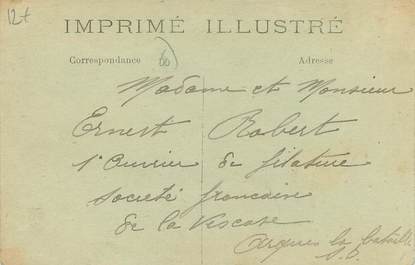 12+
IMPRIMÉ ILLUSTRÉ
Correspondance 60 Adresse
Madame et Monsieur
Ernest Robert
1er Ouvrier de filature
Société française
de la Viscose
Arques la Bataille
S.I.